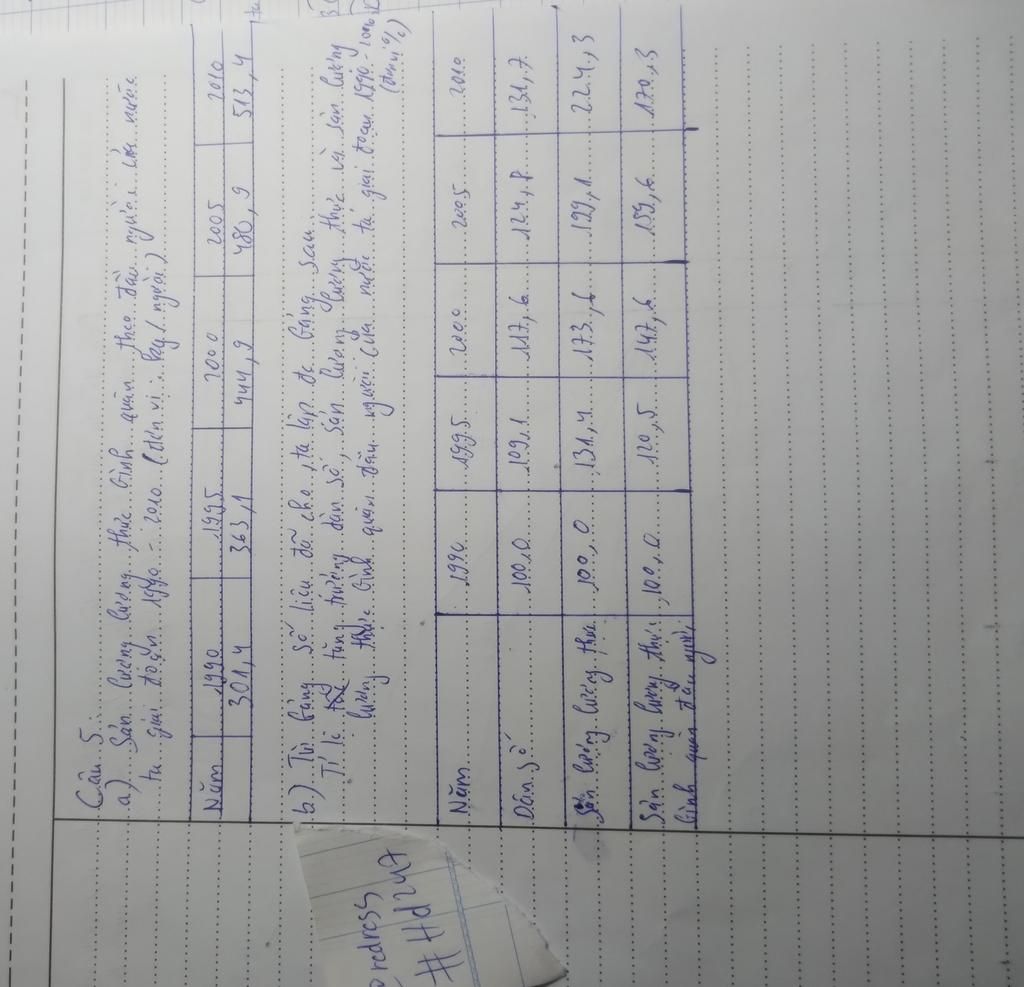 Câu 5:
a) Sản lượng lương thực bình quân theo đầu người của nước
ta giai đoạn 1990 - 2010 (đơn vị: kg/người)
Năm 1990 1995 2000 2005 2010
301,4 363,1 444,9 480,9 513,4
b) Từ bảng số liệu đã cho, ta lập đc bảng sau
Tỉ lệ tăng trưởng dân số, sản lượng lương thực và sản lượng
lương thực bình quân đầu người của nước ta giai đoạn 1990-2010
(đơn vị %)
Năm 1990 1995 2000 2005 2010
Dân số 100,0 109,1 117,6 124,8 131,7
Sản lượng lương thực 100,0 131,4 173,6 199,1 224,3
Sản lượng lương thực 100,0 120,5 147,6 159,6 170,3
bình quân đầu người
redress
# Hd247